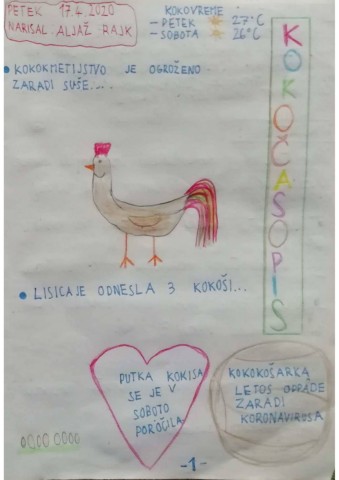 PETEK 17.4.2020
NARISAL: ALJAŽ RAJK
KOKOVREME
- PETEK 27°C
- SOBOTA 26°C
KOKOČASOPIS
• KOKOKMETIJSTVO JE OGROŽENO
ZARADI SUŠE...
• LISICA JE ODNESLA 3 KOKOŠI...
PUTKA KOKISA
SE JE V
SOBOTO
POROČILA
KOKOKOŠARKA
LETOS ODPADE
ZARADI
KORONAVIRUSA
-1-